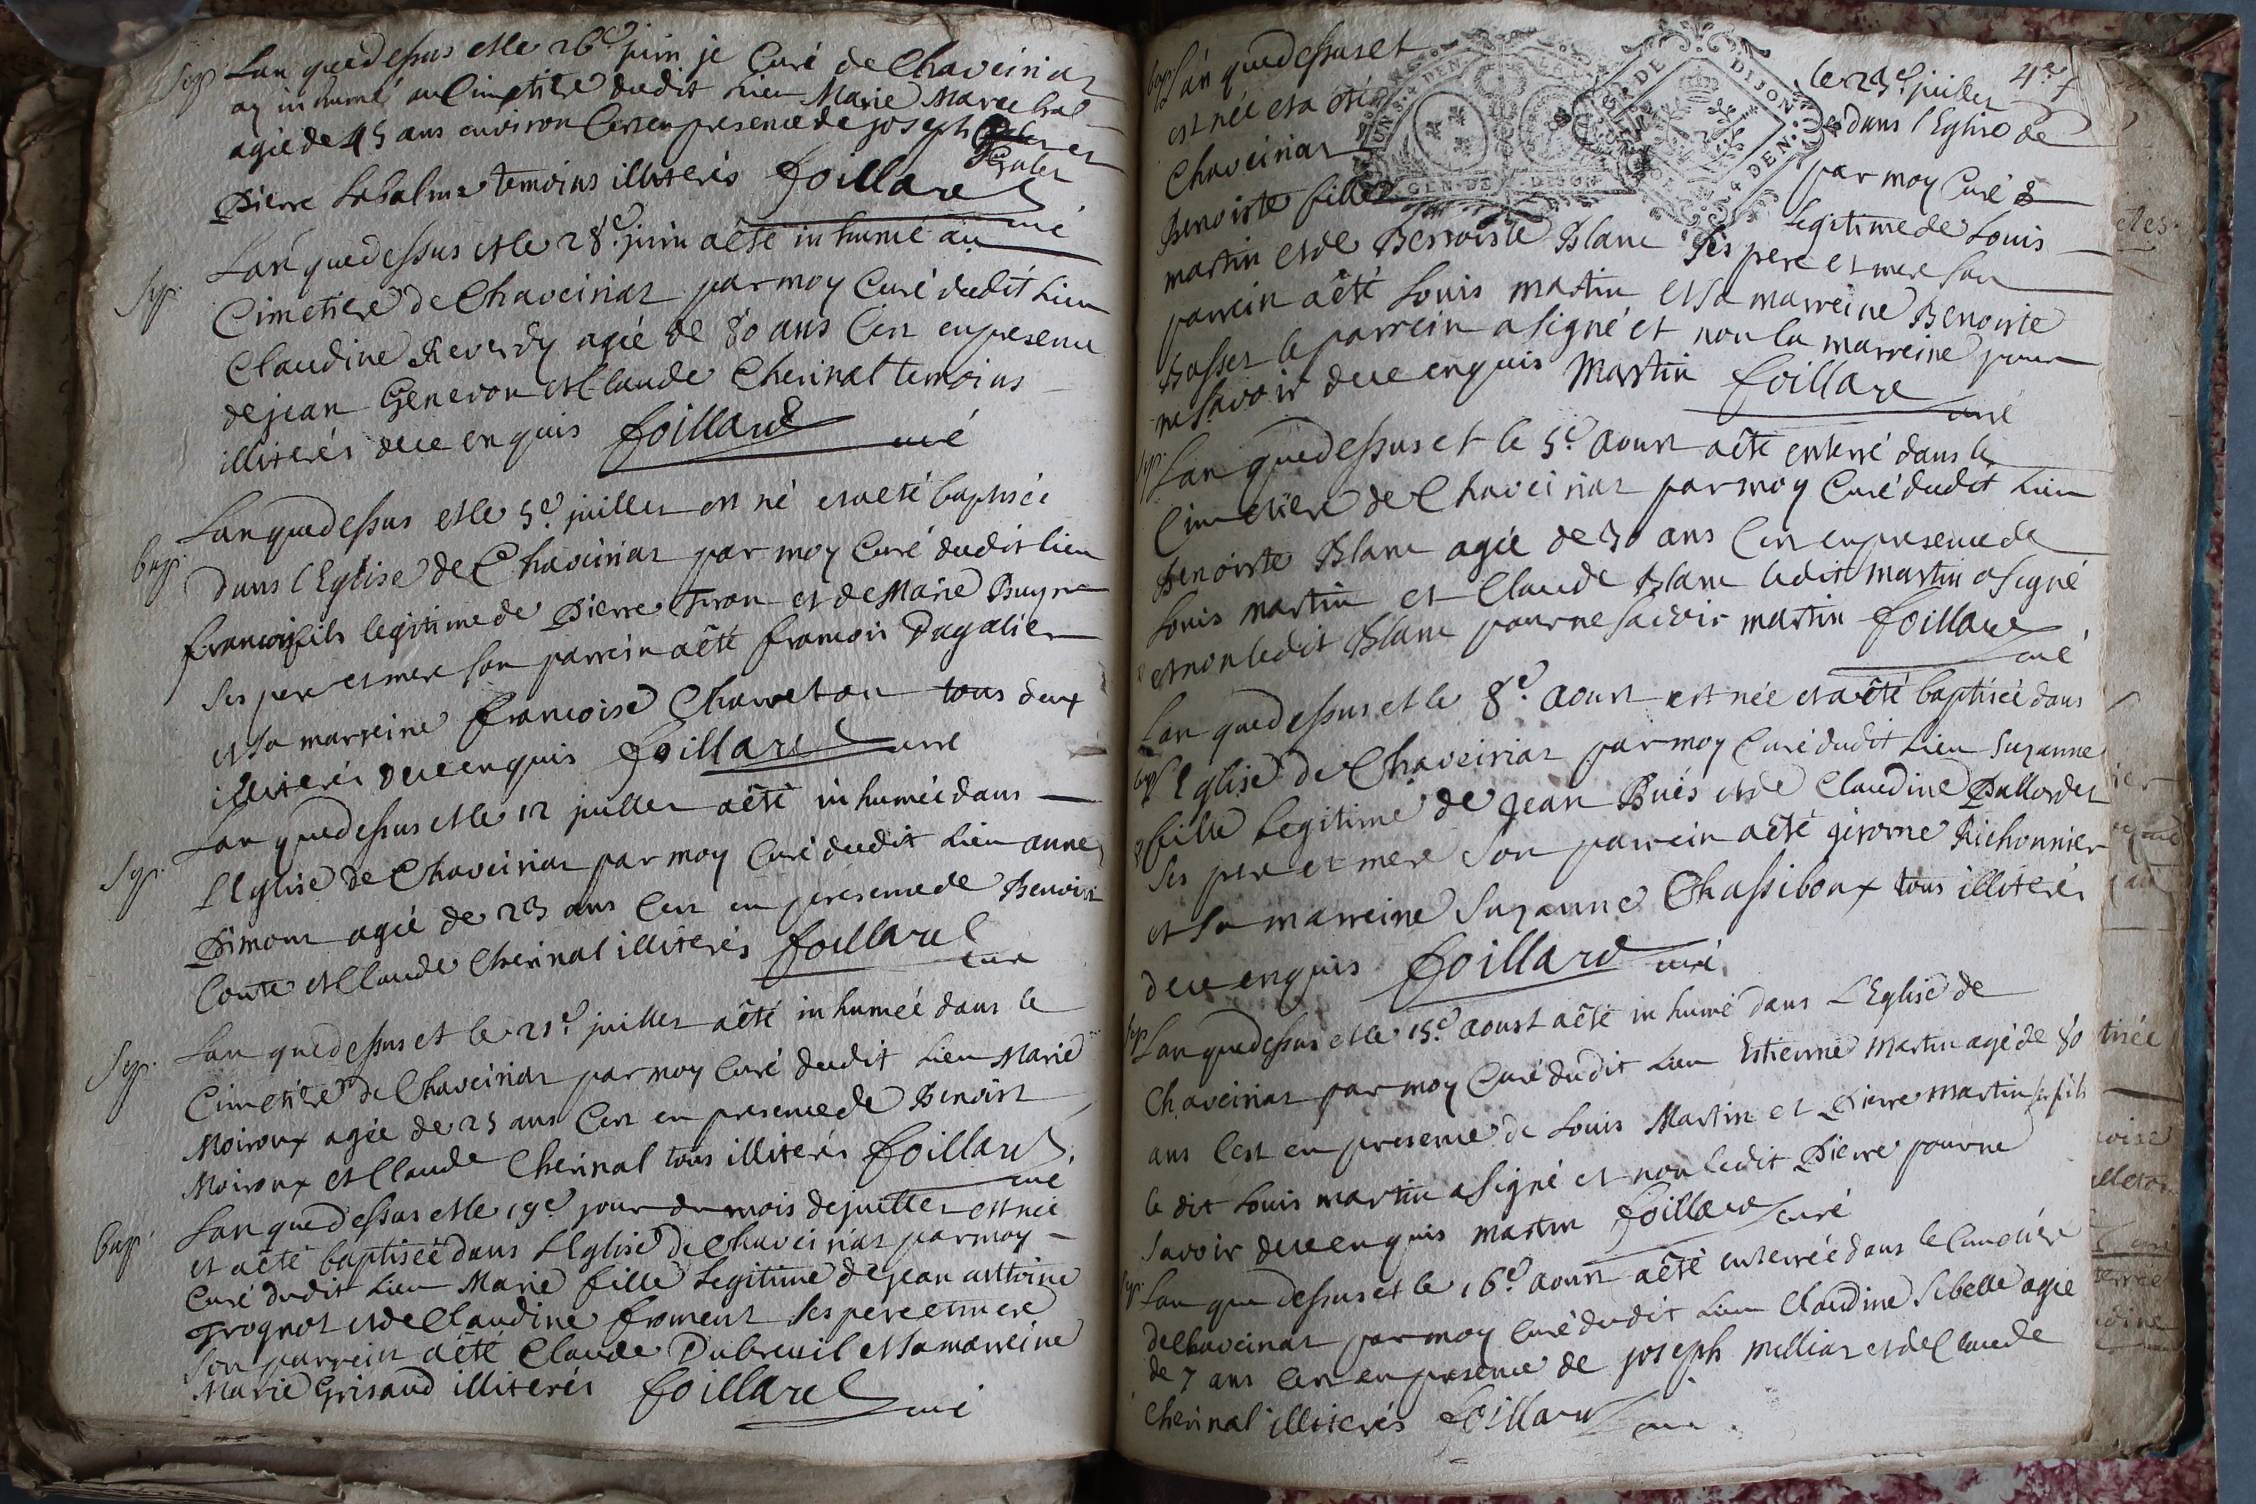 Sep. Lan que dessus et le 26e juin je Curé de Chaveiriat
ay inhumé au Cimetiere dudit Lieu Marie Marechal
agée de 45 ans environ Cest en presence de joseph
Grulet
Pierre Labalme temoins illiterés foillard
curé
Lan que dessus et le 28e juin a êté inhumé au
Sep. Cimetiere de Chaveiriat par moy Curé dudit Lieu
Claudine Reverdy agée de 80 ans Cest en presence
de jean Generon et Claude Cherinal temoins
illiterés de ce enquis foillard curé
Lan que dessus et le 5e juillet est né et a eté baptisée
bap. dans l'Eglise de Chaveiriat par moy Curé dudit lieu
francois fils legitime de Pierre et de Marie
ses pere et mere son parrein a êté francois Dagalier
et sa marreine francoise Charreton tous deux
illiterés de ce enquis foillard curé
Sep. Lan que dessus et le 12 juillet a êté inhumée dans
l'Eglise de Chaveiriat par moy Curé dudit Lieu anne
Pimont agée de 23 ans Cest en presence de Benoist
Conte et Claude Cherinal illiterés foillard
curé
Sep. Lan que dessus et le 21e juillet a êté inhumée dans le
Cimetiere de Chaveiriat par moy Curé dudit Lieu Marie
Moiroux agée de 25 ans Cest en presence de Benoist
Moiroux et Claude Cherinal tous illiterés foillard
curé
bap. Lan que dessus et le 19e jour du mois de juillet est née
et a êté baptisée dans l'Eglise de Chaveiriat par moy
Curé dudit Lieu Marie fille Legitime de jean antoine
Grognot et de Claudine froment ses pere et mere
son parrein a êté Claude Dubreuil et sa marreine
Marie Grisaud illiterés foillard
curé
4e f
bap. Lan que dessus et le 23e juillet
est née et a êté dans l'Eglise de
Chaveiriat par moy Curé &
Benoiste fille Legitime de Louis
martin et de Benoiste Blanc ses pere et mere son
parrein a êté Louis martin et sa marreine Benoiste
Bosset le parrein a signé et non la marreine pour
ne savoir de ce enquis Martin foillard
curé
Sep. Lan que dessus et le 5e aoust a êté enterré dans le
Cimetiere de Chaveiriat par moy Curé dudit Lieu
Benoiste Blanc agée de 30 ans Cest en presence de
Louis martin et Claude Blanc ledit martin a signé
et non ledit Blanc pour ne savoir martin foillard
curé
Lan que dessus et le 8e aoust est née et a êté baptisée dans
bap. l'Eglise de Chaveiriat par moy Curé dudit Lieu Suzanne
fille Legitime de jean Buis et de Claudine
ses pere et mere son parrein a êté gerome Richonnier
et sa marreine Suzanne Chassiboux tous illiterés
de ce enquis foillard curé
Sep. Lan que dessus et le 15e aoust a êté inhumé dans L'Eglise de
Chaveiriat par moy Curé dudit Lieu Estienne Martin agé de 80
ans Cest en presence de Louis Martin et Pierre martin ses fils
le dit Louis martin a signé et non ledit Pierre pour ne
savoir de ce enquis martin foillard curé
Sep. Lan que dessus et le 16e aoust a êté enterrée dans le Cimetiere
de Chaveiriat par moy Curé dudit Lieu Claudine Sibelle agée
de 7 ans Cest en presence de joseph milliat et de Claude
Cherinal illiterés foillard curé